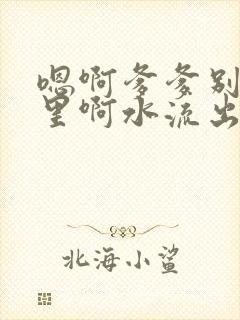 嗯啊爹爹别
里啊水流出
北海小鲨